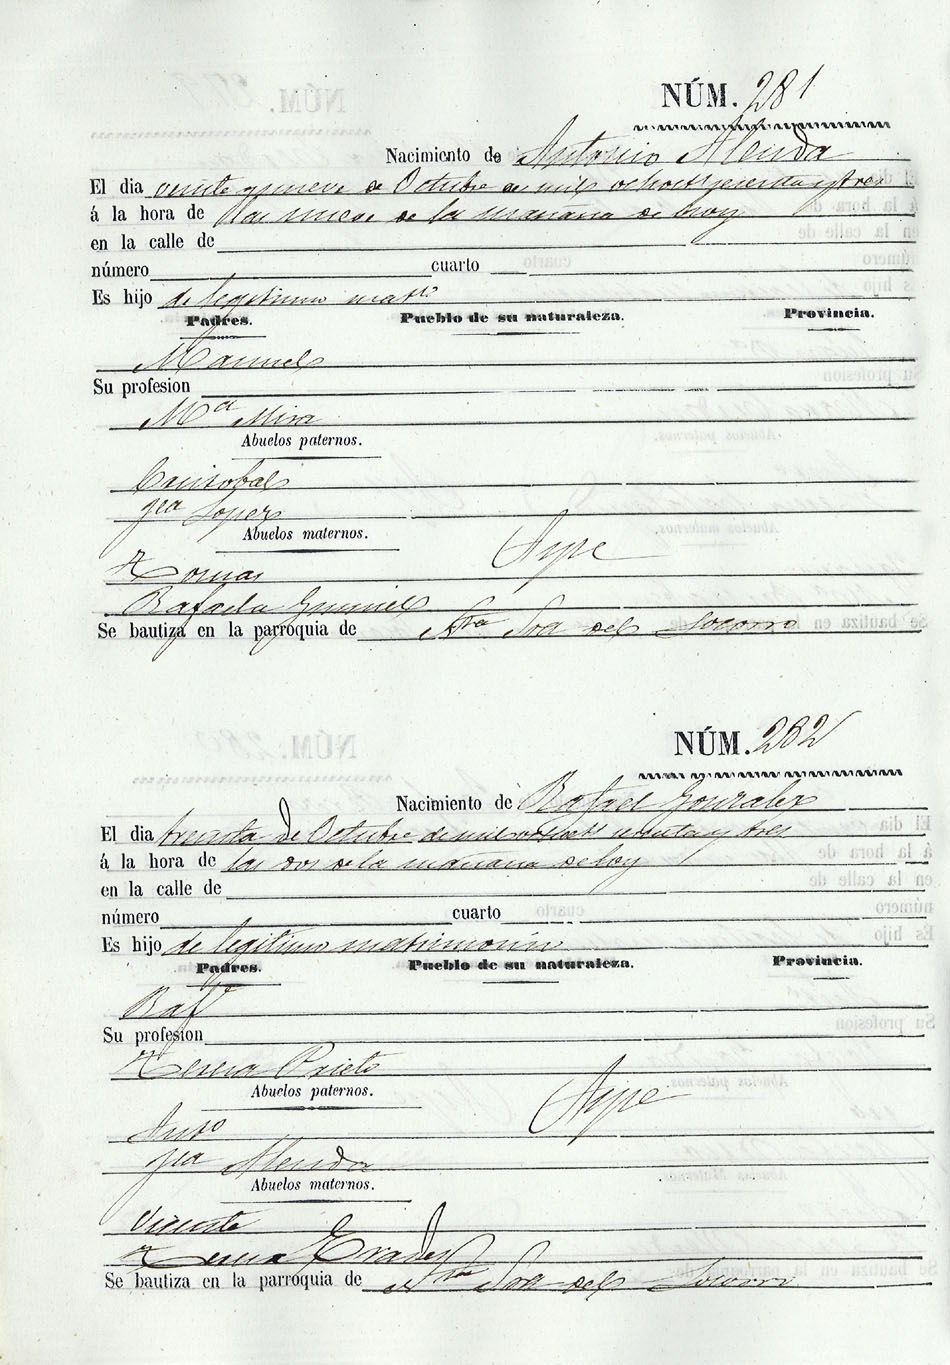 NÚM. 281
Nacimiento de Antonio Alenda
El dia veinte y nueve de Octubre de mil ochocts sesenta y tres
á la hora de las nueve de la mañana de hoy
en la calle de
número cuarto
Es hijo de legitimo matro
Padres. Pueblo de su naturaleza. Provincia.
Manuel
Su profesion
Mª Mira
Abuelos paternos.
Cristobal
Jca Lopez
Abuelos maternos.
Aspe
Tomas
Rafaela
Se bautiza en la parroquia de Ntra Sra del Socorro
NÚM. 282
Nacimiento de Rafael Gonzalez
El dia treinta de Octubre de mil ochocts sesenta y tres
á la hora de las dos de la mañana de hoy
en la calle de
número cuarto
Es hijo de legitimo matrimonio
Padres. Pueblo de su naturaleza. Provincia.
Rafl
Su profesion
Teresa Prieto
Abuelos paternos.
Aspe
Anto
Jca Alenda
Abuelos maternos.
Vicente
Teresa Erades
Se bautiza en la parroquia de Ntra Sra del Socorro